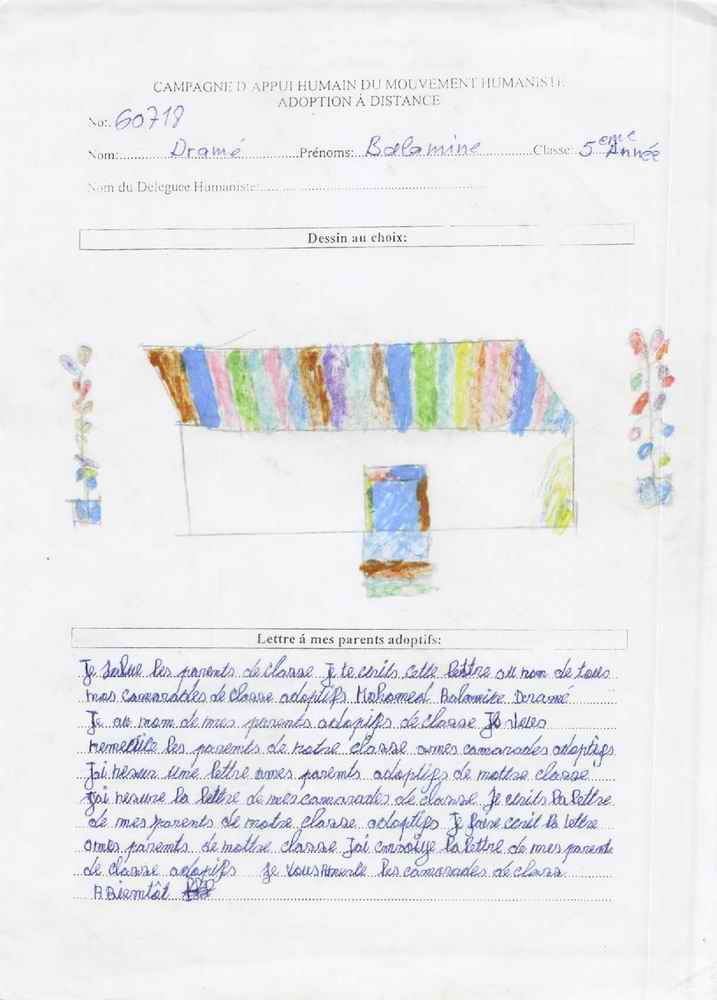 CAMPAGNE D'APPUI HUMAIN DU MOUVEMENT HUMANISTE
ADOPTION À DISTANCE
No: 60718
Nom: Dramé Prénoms: Balamine Classe: 5 eme Année
Nom du Deleguee Humaniste:
Dessin au choix:
Lettre á mes parents adoptifs:
Je salue les parents de classe Je te ecrits cette lettre au nom de tous
mes camarades de classe adoptifs Mohamed Balamine Dramé
Je au nom de mes parents adoptifs de classe Je vous
les parents de notre classe a mes camarades adoptifs
J'ai une lettre a mes parents adoptifs de mottre classe
j'ai la lettre de mes camarades de classe. Je ecrits la lettre
de mes parents de notre classe adoptifs Je faire ecrit la lettre
a mes parents de mottre classe J'ai la lettre de mes parents
de classe adoptifs je vous les camarades de class
A Bientôt